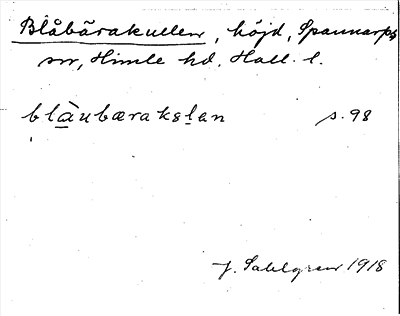 Blåbärakullen, höjd, Spannarps
sn, Himle hd, Hall. l.
blàubærakslan s. 98
J. Sahlgren 1918